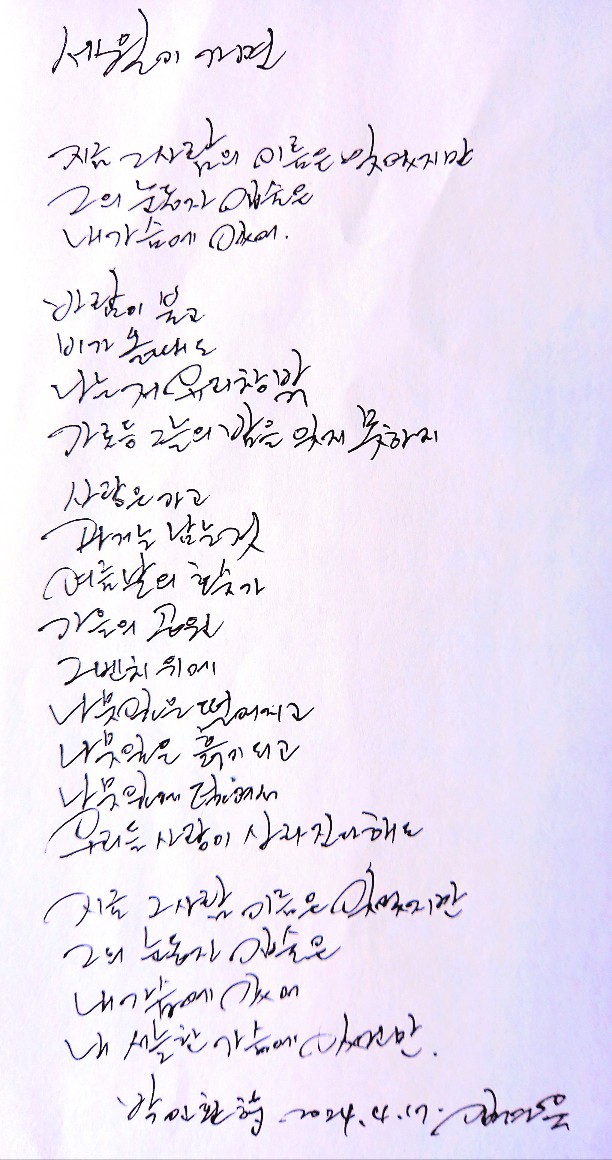 세월이 가면
지금 그사람의 이름은 잊었지만
그의 눈동자 입술은
내가슴에 있어.
바람이 불고
비가 올때도
나는 저 유리창 밖
가로등 그늘의 밤을 잊지 못하지
사랑은 가고
과거는 남는것
여름날의 호숫가
가을의 공원
그벤치 위에
나뭇잎은 떨어지고
나뭇잎은 흙이 되고
나뭇잎에 덮여서
우리들 사랑이 사라진다해도
지금 그사람 이름은 잊었지만
그의 눈동자 입술은
내가슴에 있어
내 서늘한 가슴에 있건만.
박인환 2024.4.17.